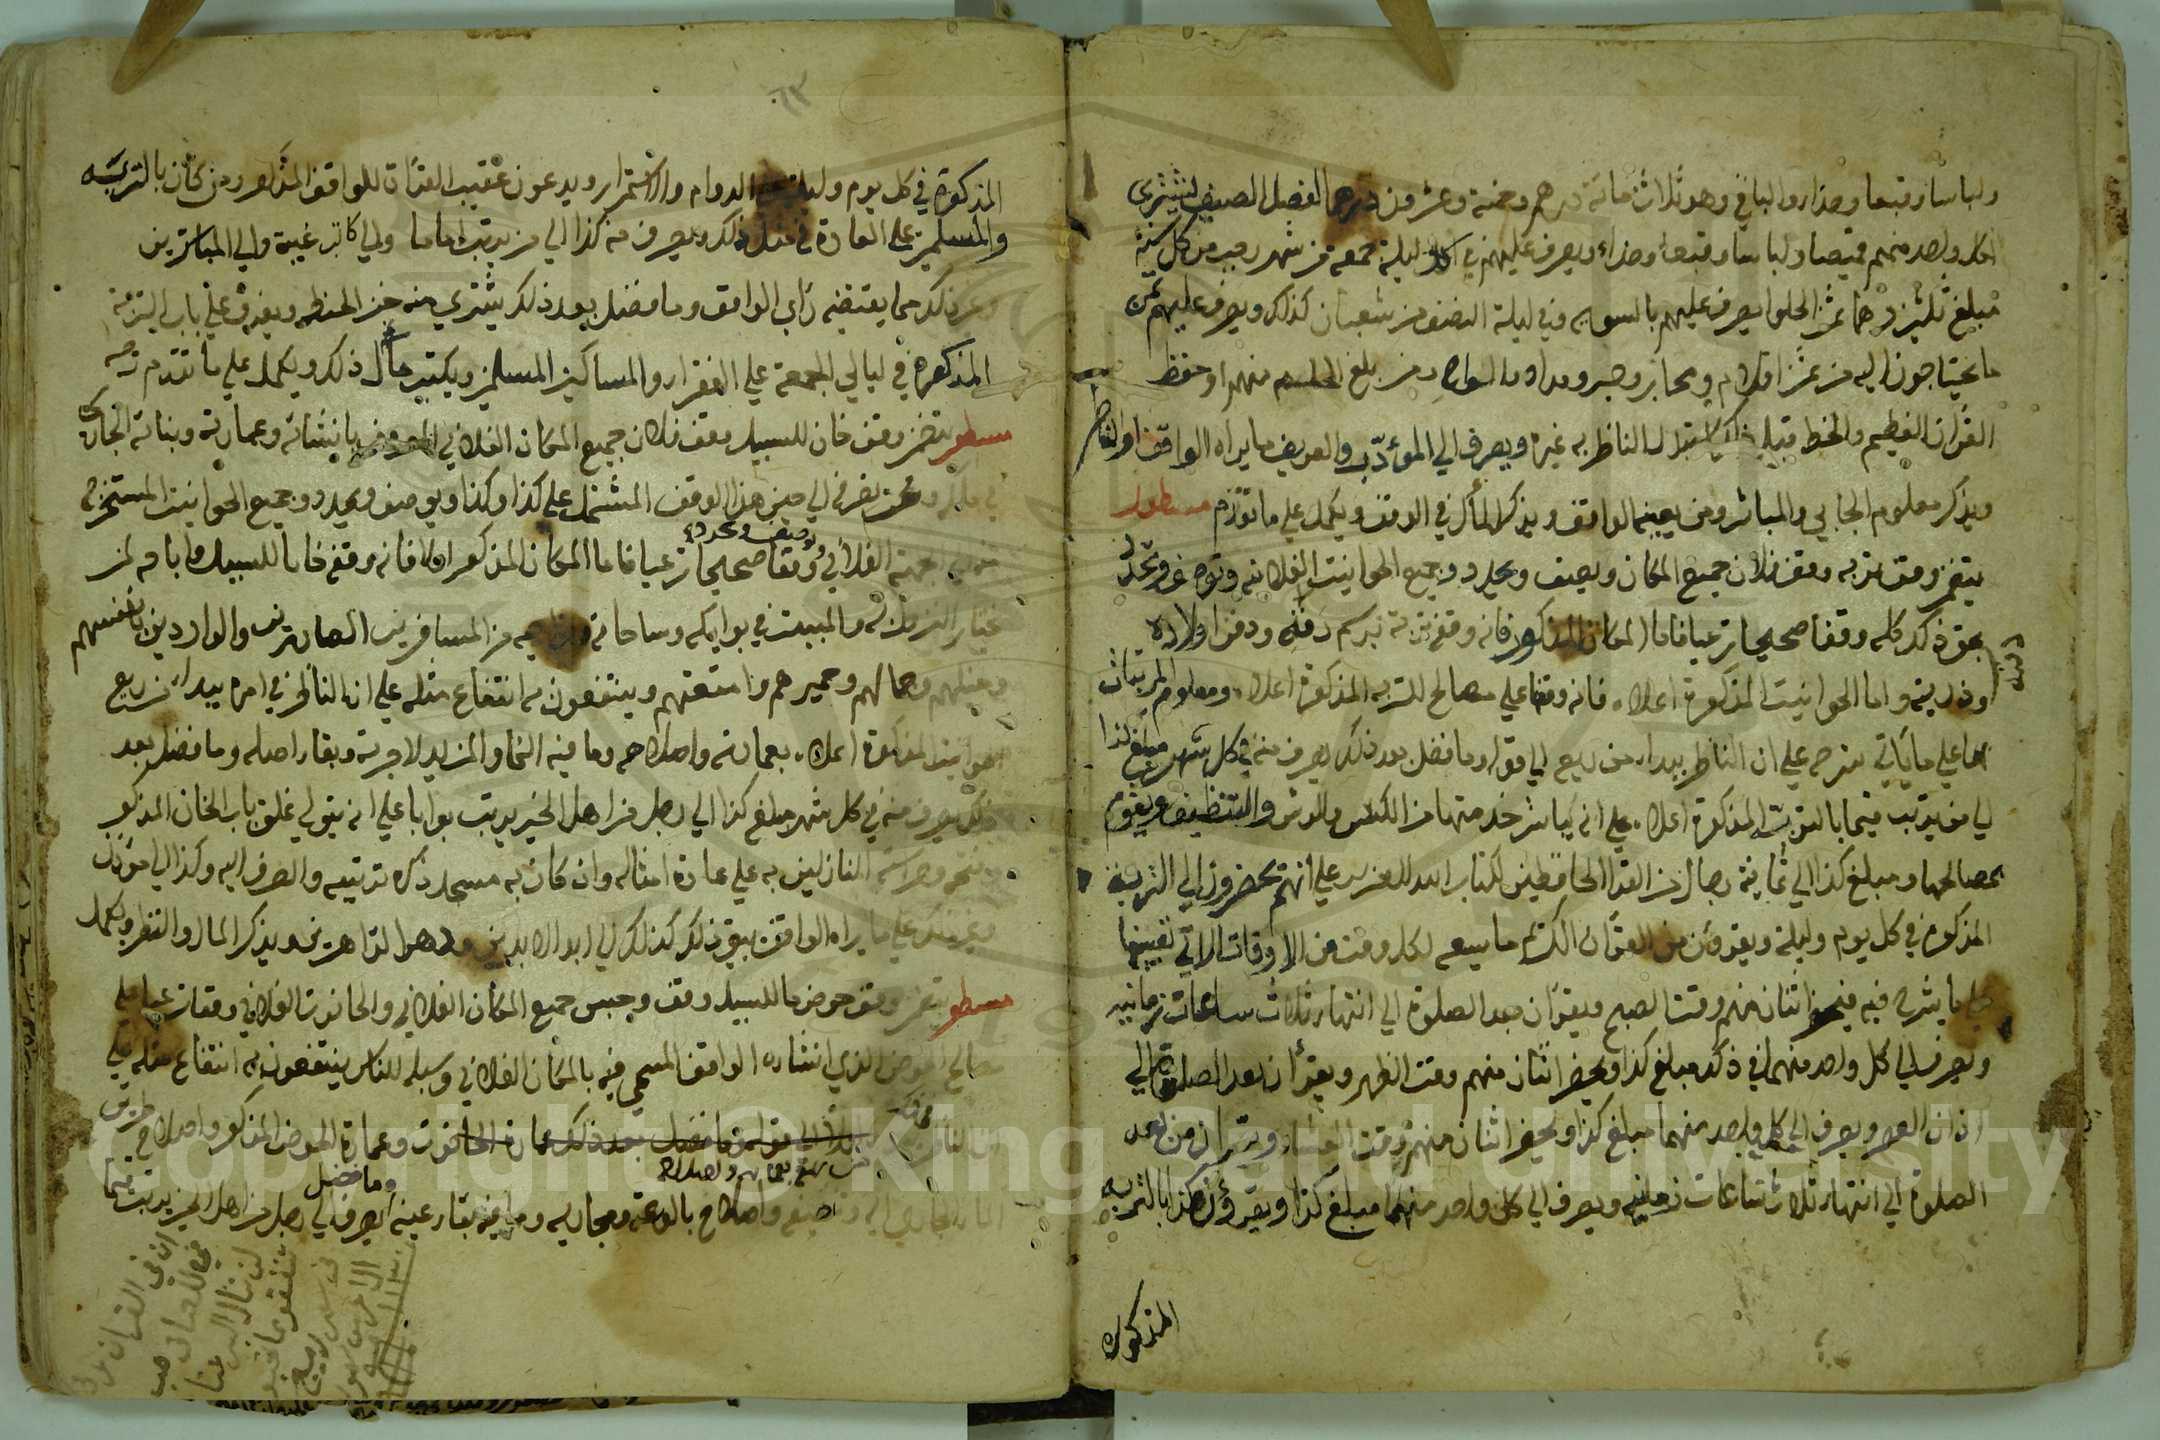 ولباسا وقبعا وحذاء والباقي وهو ثلاث مائة درهم وخمسة وعشرون درهما لفصل الصيف ليشترى
لكل واحد منهم قميصا ولباسا وقبعا وحذاء ويصرف عليهم في كل ليلة جمعة من شهر رجب من كل سنة
مبلغ ثلثين درهما ثمن الحلوا يصرف عليهم بالسوية وفي ليلة النصف من شعبان كذلك ويصرف عليهم ثمن
ما يحتاجون اليه من ثمن اقلام ومحابر وحبر ومداد والواح ومن بلغ الحلم منهم او حفظ
القران العظيم والخط قبل ذلك استبدل الناظر به غيره ويصرف الي المؤدب والعريف ما يراه الواقف او الناظر
ويذكر معلوم الجابي والمباشر ومن يعينه الواقف ويذكر المآل في الوقف ويكمل علي ما تقدم مسطور
يتضمن وقف تربه وقف فلان جميع المكان ويصف ويحدد وجميع الحوانيت الفلانيه وتوصف وتحدد
بحق ذلك كله وقفا صحيحا شرعيا فاما المكان المذكور فانه وقفه تربة برسم دفنه ودفن اولاده
وذريته واما الحوانيت المذكورة اعلاه فانه وقفها علي مصالح التربه المذكورة اعلاه ومعلوم المرتبات
بها علي ما ياتي شرحه علي ان الناظر يبداء من ريع الي قوله وما فضل بعد ذلك يصرف منه في كل شهر مبلغ كذا
الي من يرتب قيما بالتربة المذكورة اعلاه علي انه يباشر خدمتها من الكنس والرش والتنظيف ويقوم
بمصالحها ومبلغ كذا الي ثمانية رجال من القرا الحافظين لكتاب الله العزيز علي انهم يحضرون الي التربة
المذكورة في كل يوم وليلة ويقرؤن من القران الكريم ما يسع لكل وقت من الاوقات الاتي تعيينها
علي ما يشرح فيه فيحضر اثنان منهم وقت الصبح ويقرآن بعد الصلوة الي انتهاء ثلاث ساعات زمانيه
ويصرف الي كل واحد منهما في ذلك مبلغ كذا ويحضر اثنان منهم وقت الظهر ويقرأن بعد الصلوة الي
اذان العصر ويصرف الي كل واحد منهما مبلغ كذا ويحضر اثنان منهم وقت العشاء ويقران من بعد
الصلوة الي انتهاء ثلاث ساعات زمانيه ويصرف الي كل واحد منهما مبلغ كذا ويقرؤن هكذا بالتربه
المذكوره
٦٣
المذكورة في كل يوم وليلة علي الدوام والاستمرار ويدعون عقيب القراة للواقف المذكور ومن كان بالتربه
والمسلمين علي العادة في مثل ذلك ويصرف منه كذا الي من يرتب اماما والي كاتب غيبة والي المباشرين
وغير ذلك مما يقتضيه راي الواقف وما فضل بعد ذلك يشتري منه خبز الحنطه ويفرق علي باب التربة
المذكوره في ليالي الجمعة علي الفقراء والمساكين المسلمين ويكتب مآل ذلك ويكمل علي ما تقدم شرحه
مسطور يتضمن وقف خان للسبيل وقف فلان جميع المكان الفلاني المعروف بانشائه وعمارته وبنائه الجاري
في ملكه وتصرفه الي حين هذا الوقف المشتمل علي كذا وكذا ويوصف ويحدد وجميع الحوانيت المستخرجة
الجهة الفلاني وتوصف وتحدد وقفا صحيحا شرعيا فاما المكان المذكور اولا فانه وقفه خانا للسبيل واباحه لمن
يختار النزول به والمبيت في بوايكه وساحاته ونواحيه من المسافرين الصادرين والواردين بانفسهم
وخيلهم وجمالهم وحميرهم وامتعتهم وينتفعون به انتفاع مثله علي ان الناظر في امره يبداء من ريع
الحوانيت المذكورة اعلاه بعمارته واصلاحه وما فيه النما والمزيد لاجرته وبقاء اصله وما فضل بعد
ذلك يصرف منه في كل شهر مبلغ كذا الي رجل من اهل الخير يرتب بوابا علي انه يتولي غلق باب الخان المذكور
وفتحه وحراسة النازلين به علي عادة امثاله وان كان به مسجد ذكره ترتيبه والصرف اليه وكذا الي مؤذن
وغير ذلك علي ما يراه الواقف يبقي ذلك كذلك الي ابد الابدين ودهر الداهرين ويذكر المال والنظر ويكمل
مسطور يتضمن وقف حوض ما للسبيل وقف وحبس جميع المكان الفلاني والحانوت الفلاني وقفا شرعيا علي
مصالح الحوض الذي انشاه الواقف المسمي فيه بالمكان الفلاني وسبله للناس ينتفعون به انتفاع مثله علي
ان الناظر الي قوله وما فضل بعد ذلك عمارة الحانوت وعمارة الحوض المذكور واصلاح طريق
وما فضل
الماء الجاري اليه واصلاح بالوعته ومجاريه وما فيه بقاء عينه يصرف الي رجل من اهل الخير يرتب قيما